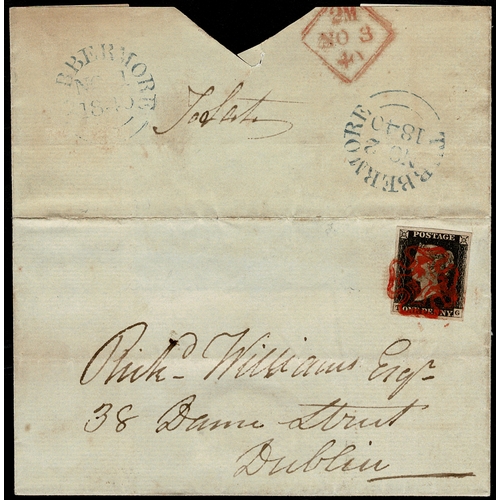 BBERMORE
NO 1
1840
2M
NO 3
40
Too Late
TUBBERMORE
NO 2
1840
POSTAGE
T ONE PENNY G
Richd Williams Esqr
38 Dame Street
Dublin